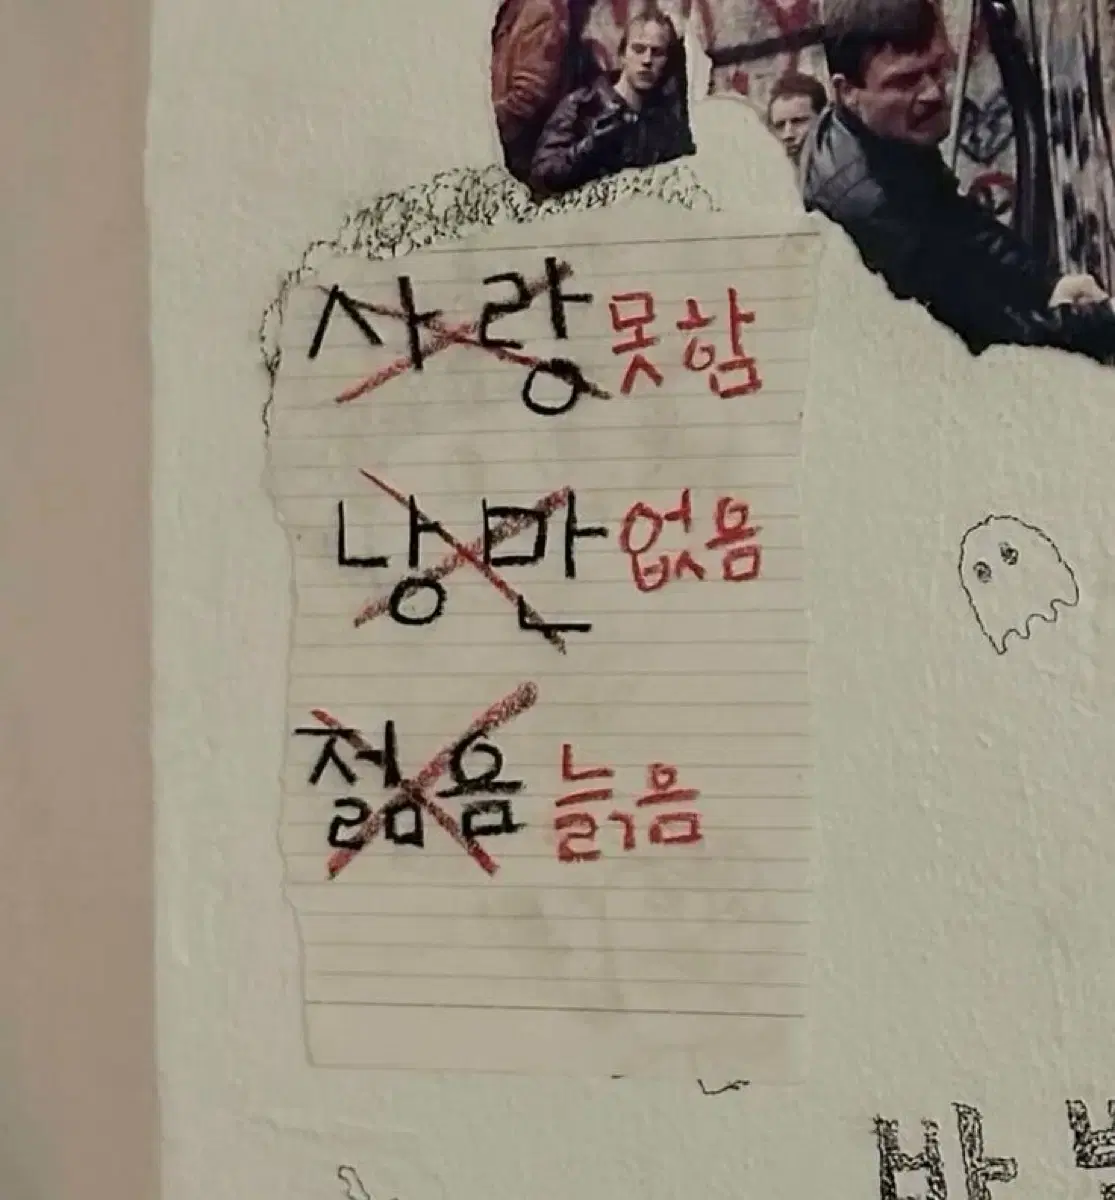 사랑 못함
낭만 없음
젊음 늙음
바